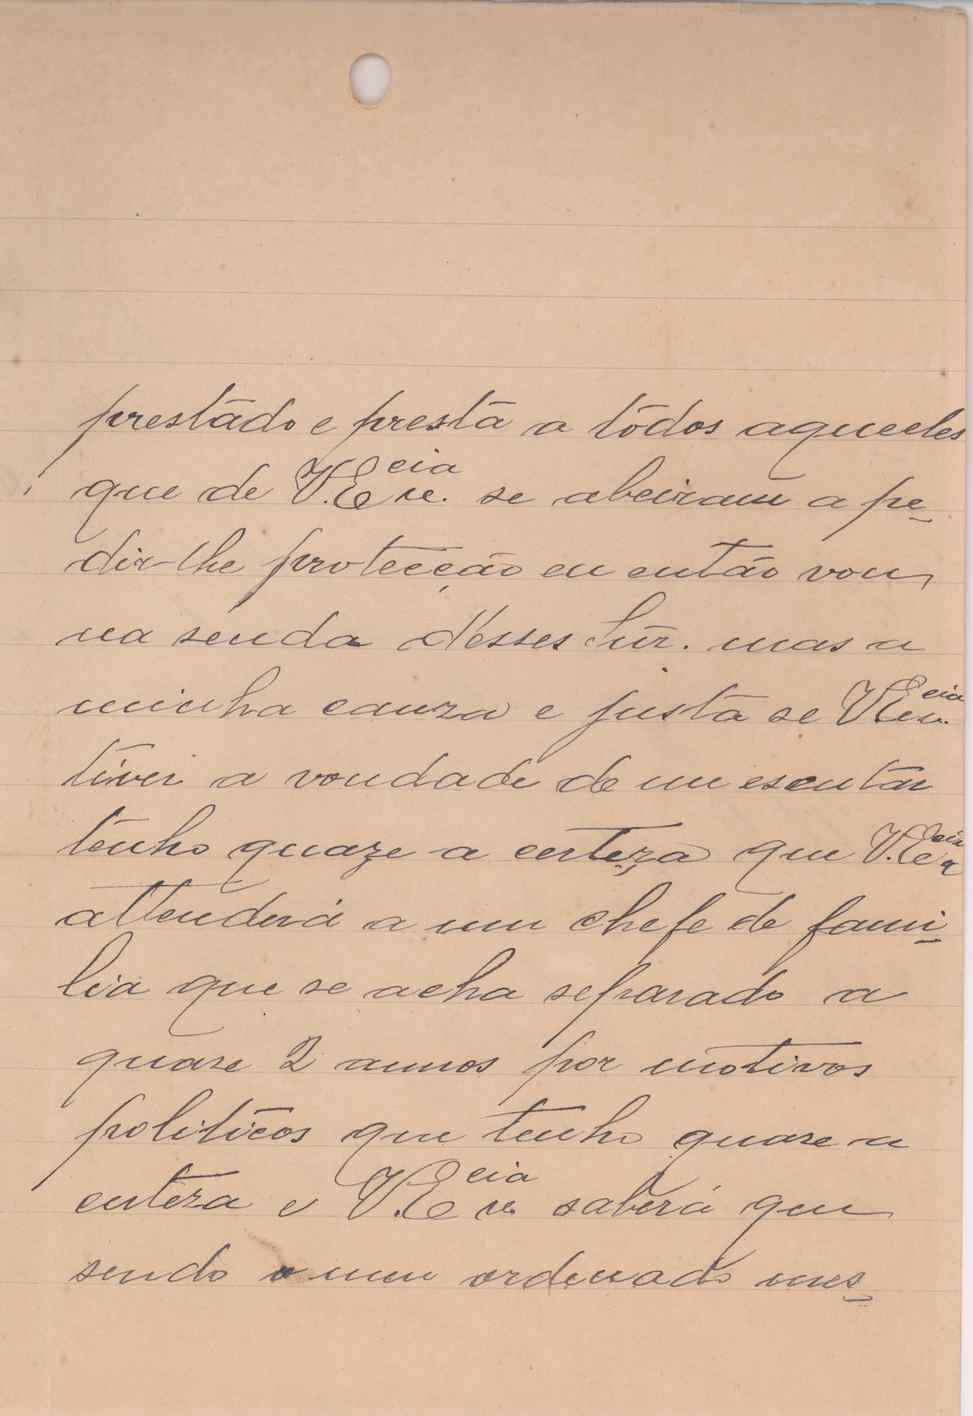 prestado e presta a todos aqueeles
que de V. Ex.cia se abeiram a pe-
dir-lhe protecção eu então vou
na senda d'esses Snr. mas a
minha cauza e justa se V Ex.cia
tiver a vondade de me escutar
tenho quaze a certeza que V. Ex.cia
attenderá a um chefe de fami-
lia que se acha separado a
quase 2 annos por motivos
politicos que tenho quase a
certeza e V. Ex.cia saberá que
sendo o meu ordenado mes-